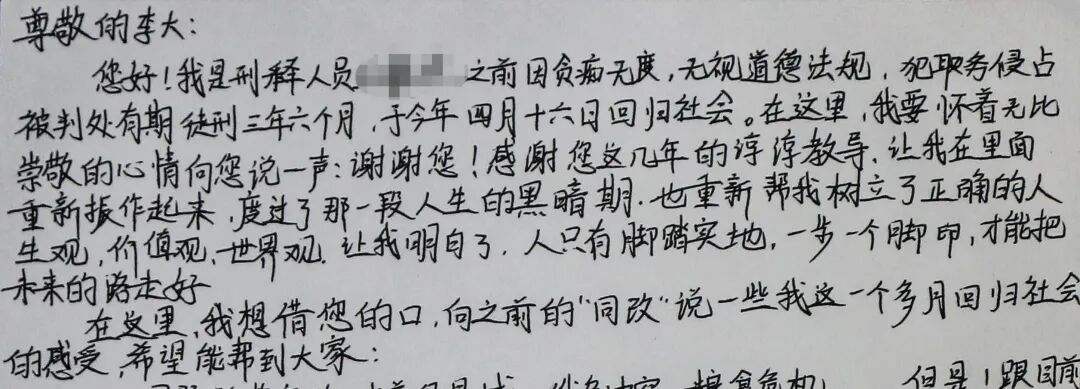 尊敬的李大:
您好!我是刑释人员 之前因贪痴无度,无视道德法规,犯职务侵占
被判处有期徒刑三年六个月,于今年四月十六日回归社会。在这里,我要怀着无比
崇敬的心情向您说一声:谢谢您!感谢您这几年的谆谆教导,让我在里面
重新振作起来,度过了那一段人生的黑暗期.也重新帮我树立了正确的人
生观,价值观,世界观.让我明白了,人只有脚踏实地,一步一个脚印,才能把
未来的路走好
在这里,我想借您的口,向之前的"同改"说一些我这一个多月回归社会
的感受,希望能帮到大家:
但是!跟目前